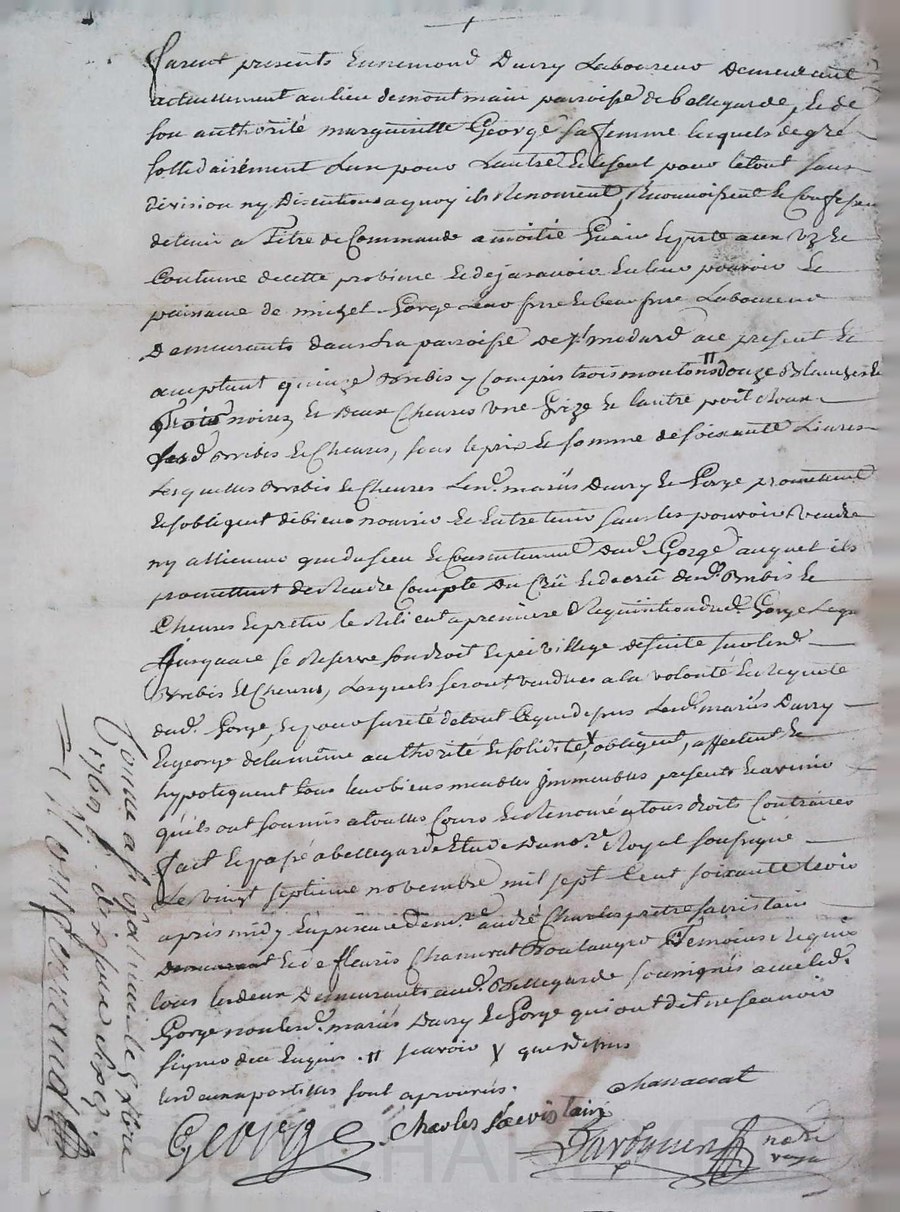 furent presents Ennemond Duvry Laboureur Demeurant
actuellement au lieu de montmain parroisse de bellegarde, Et de
son authorité margueritte George sa femme lesquels de gré
sollidairement L'un pour L'autre Et le seul pour le tout sans
division ny Discution a quoy ils Renoncent, Reconnoissent Et Confessent
detenir a Titre de Commande a moitié Gain Et perte aux Uz Et
Coutume de cette province Et deja avoir En leur pouvoir Et
puissance de michel George Leur frere Et beau frere Laboureur
Demeurants dans La parroisse de St medard ace present Et
acceptant quinze Brebis y Compris trois moutons " douze Blanches Et
Trois noires, Et Deux Chevres Une Grize Et l'autre poil
Lesd. Brebis Et Chevres, sous le prix Et somme de soixante Livres
Lesquelles Brebis Et Chevres Lesd. mariés Duvry Et George promettent
Et s'obligent de bien nourrir Et Entretenir sans les pouvoir Vendre
ny alliener que du sceu Et Consentement Dud. George auquel ils
promettent de Rendre Compte Du Crû Et decrû desd. Brebis Et
Chevres Et prêter le a premiere Requisition dud. George Lequel
Jusqu'a ce se Reserve son droit Et privillege sur lesd.
Brebis Et Chevres, Lesquels seront vendues a la volonté Et Requete
dud. George, Et pour sureté de tout Ce que dessus Lesd. mariés Duvry
Et george de la même authorité Et solidité y obligent, affectent Et
hypotequent tous leurs biens meubles Immeubles presents Et avenir
qu'ils ont soumis a toutes Cours Et Renoncé a tous droits Contraires
fait Et passé a bellegarde Etude Du nore. Royal soussigné
Le vingt septieme novembre mil sept Cent soixante Et
apres midy En presence de mre. andré Charles prêtre sacristain
Et de fleuris Chanavat Boulanger Temoins Requis
tous les deux Demeurants aud. Bellegarde soussignés avec led.
George non lesd. mariés Duvry Et George qui ont dit ne sçavoir
signer de ce Enquis . " sçavoir y que dessus
les deux apostilles sont aprouvés.
Chanavat
George Charles Sacristain
nore
royal
Controllé a St galmier le
1760 R. dix sous